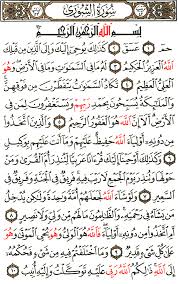 سُورَةُ الشُّورَىٰ
بِسْمِ اللَّهِ الرَّحْمَٰنِ الرَّحِيمِ
حمٓ ١ عٓسٓقٓ ٢ كَذَٰلِكَ يُوحِىٓ إِلَيْكَ وَإِلَى الَّذِينَ مِن قَبْلِكَ
اللَّهُ الْعَزِيزُ الْحَكِيمُ ٣ لَهُۥ مَا فِى السَّمَٰوَٰتِ وَمَا فِى الْأَرْضِ وَهُوَ
الْعَلِىُّ الْعَظِيمُ ٤ تَكَادُ السَّمَٰوَٰتُ يَتَفَطَّرْنَ مِن فَوْقِهِنَّ
وَالْمَلَٰٓئِكَةُ يُسَبِّحُونَ بِحَمْدِ رَبِّهِمْ وَيَسْتَغْفِرُونَ لِمَن فِى
الْأَرْضِ أَلَآ إِنَّ اللَّهَ هُوَ الْغَفُورُ الرَّحِيمُ ٥ وَالَّذِينَ اتَّخَذُوا۟
مِن دُونِهِۦٓ أَوْلِيَآءَ اللَّهُ حَفِيظٌ عَلَيْهِمْ وَمَآ أَنتَ عَلَيْهِم بِوَكِيلٍ
٦ وَكَذَٰلِكَ أَوْحَيْنَآ إِلَيْكَ قُرْءَانًا عَرَبِيًّا لِّتُنذِرَ أُمَّ الْقُرَىٰ وَمَنْ
حَوْلَهَا وَتُنذِرَ يَوْمَ الْجَمْعِ لَا رَيْبَ فِيهِ فَرِيقٌ فِى الْجَنَّةِ وَفَرِيقٌ فِى
السَّعِيرِ ٧ وَلَوْ شَآءَ اللَّهُ لَجَعَلَهُمْ أُمَّةً وَٰحِدَةً وَلَٰكِن يُدْخِلُ
مَن يَشَآءُ فِى رَحْمَتِهِۦ وَالظَّٰلِمُونَ مَا لَهُم مِّن وَلِىٍّ وَلَا نَصِيرٍ ٨
أَمِ اتَّخَذُوا۟ مِن دُونِهِۦٓ أَوْلِيَآءَ فَاللَّهُ هُوَ الْوَلِىُّ وَهُوَ يُحْىِ الْمَوْتَىٰ وَهُوَ
عَلَىٰ كُلِّ شَىْءٍ قَدِيرٌ ٩ وَمَا اخْتَلَفْتُمْ فِيهِ مِن شَىْءٍ فَحُكْمُهُۥٓ
إِلَى اللَّهِ ذَٰلِكُمُ اللَّهُ رَبِّى عَلَيْهِ تَوَكَّلْتُ وَإِلَيْهِ أُنِيبُ ١٠